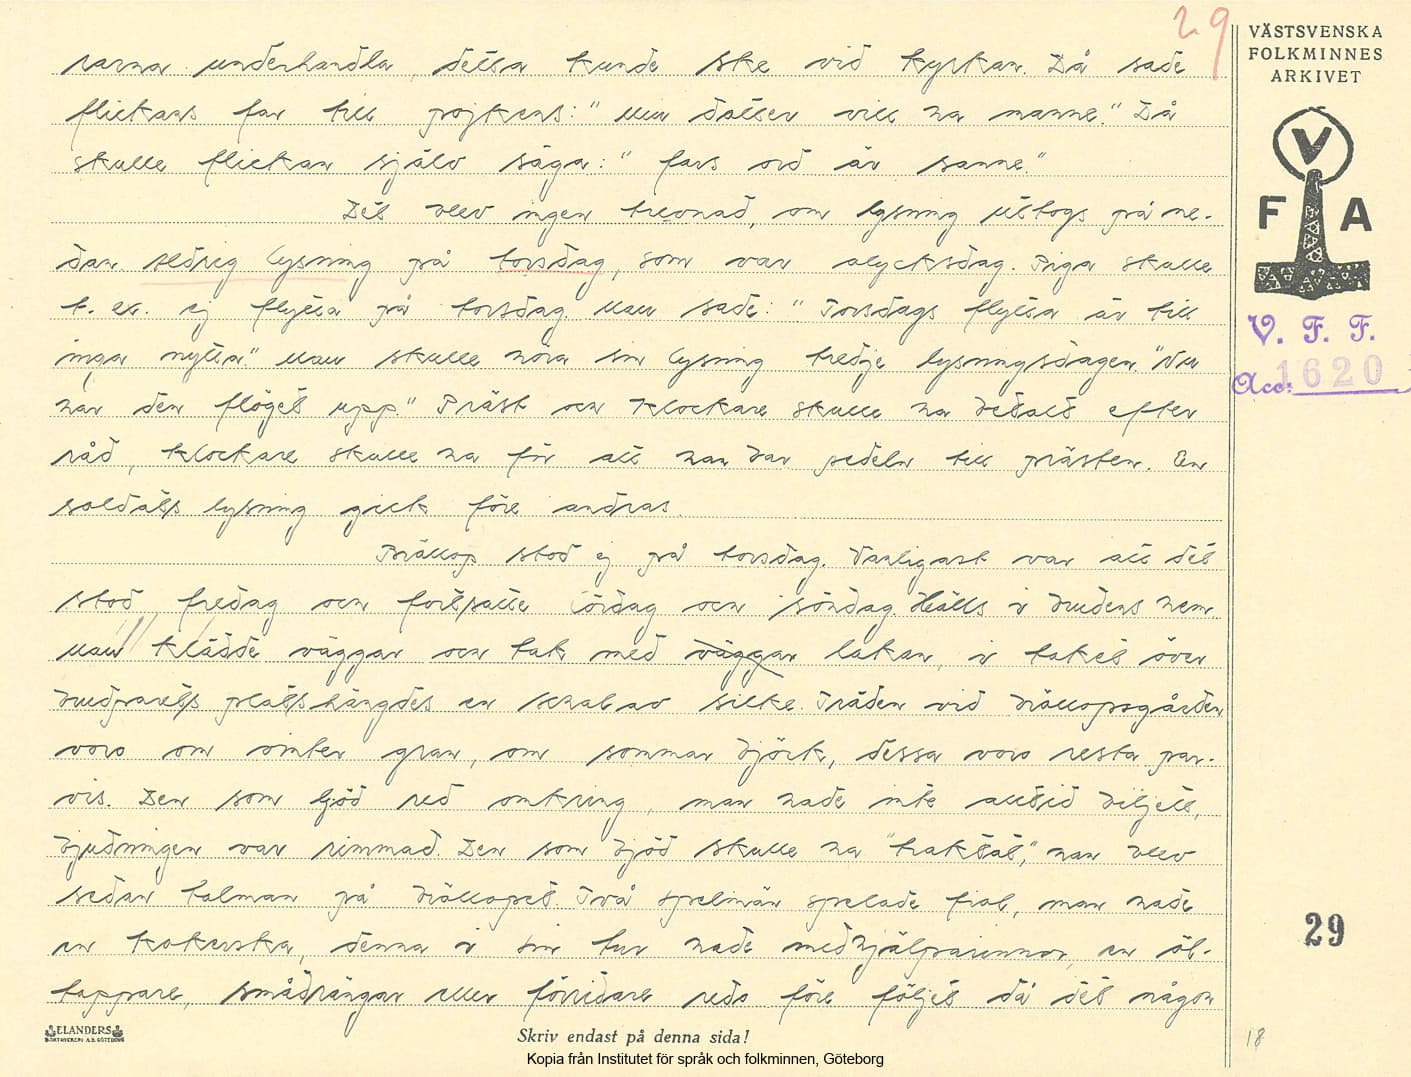 29
VÄSTSVENSKA
FOLKMINNES
ARKIVET
rarna underhandla, detta kunde ske vid kyrkan. Då sade
flickans far till pojkens: "Min dotter vill ha manne." Då
skulle flickan själv säga: "fars ord är sanne."
Det blev ingen trevnad, om lysning uttogs på ne-
dan. aldrig lysning på torsdag, som var olycksdag. Piga skulle
t. ex. ej flytta på torsdag. Man sade: "Torsdags flytta är till
inga nytta." Man skulle höra sin lysning tredje lysningsdagen. "Nu
har den flöget upp." Präst och klockare skulle ha betalt efter
råd, klockare skulle ha för att han bar sedeln till prästen. En
soldats lysning gick före andras.
Bröllop stod ej på torsdag. Vanligast var att det
stod fredag och fortsatte lördag och söndag. Hölls i brudens hem.
Man klädde väggar och tak med väggar lakan, i taket över
brudparets plats hängdes en schal av silke. Träden vid bröllopsgården
voro om vinter gran, om sommar björk, dessa voro resta par-
vis. Den som bjöd red omkring, man hade inte alltid biljett,
bjudningen var rimmad. Den som bjöd skulle ha "traktat," han blev
sedan talman på bröllopet. Två spelmän spelade fiol, man hade
en kokerska, denna i sin tur hade medhjälparinnor, en öl-
tappare, smådrängar eller förridare redo före följet då det någon
V
F A
V. F. F.
Acc: 1620
29
18
ELANDERS
Skriv endast på denna sida!
Kopia från Institutet för språk och folkminnen, Göteborg